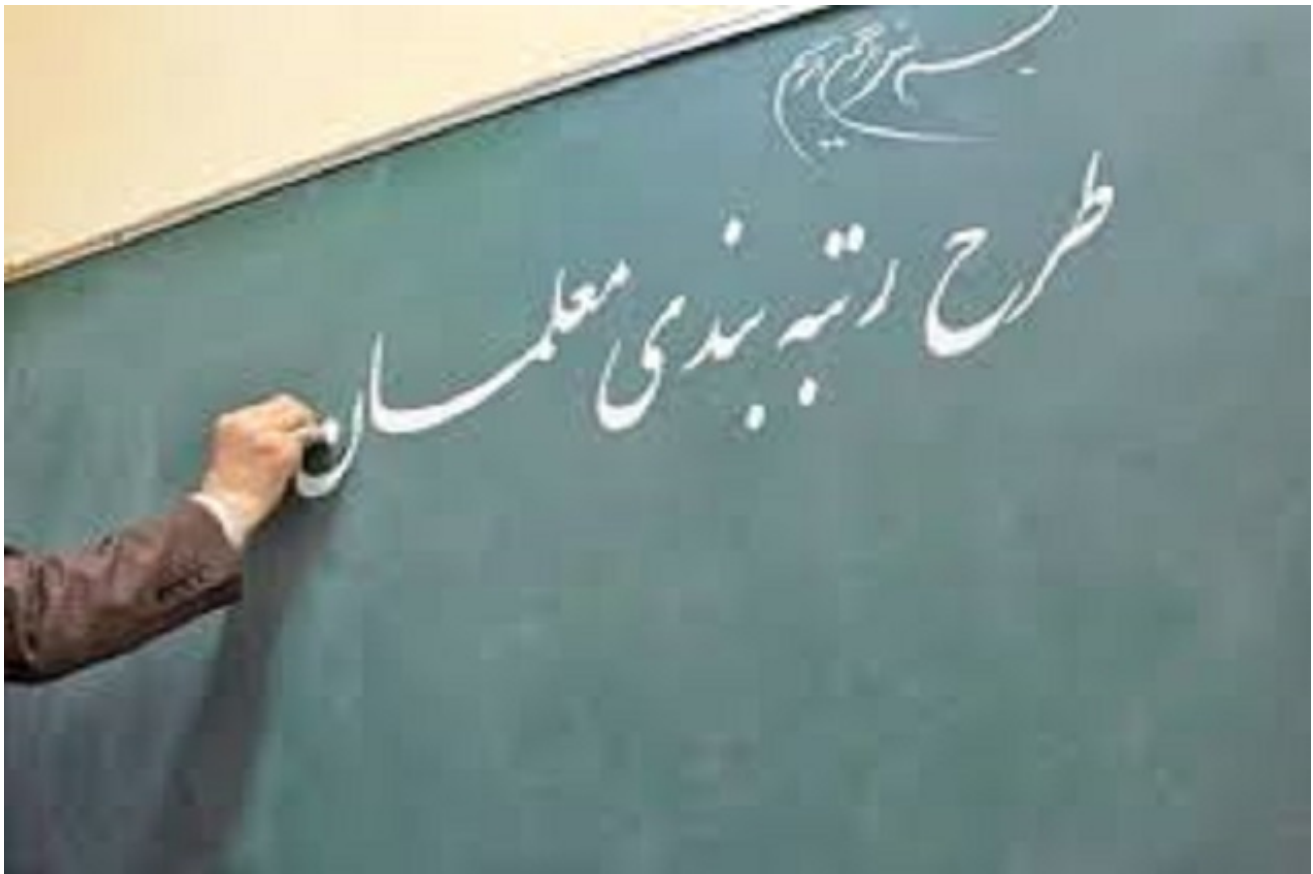 بسم الله الرحمن الرحیم
طرح رتبه بندی معلمان